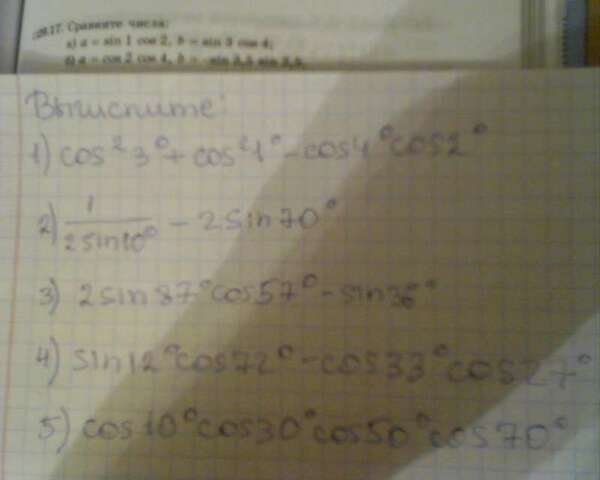 29.17. Сравните числа:
а) a = sin 1 cos 2, b = sin 3 cos 4;
б) a = cos 2 cos 4, b = sin 3,5 sin 2,5.
Вычислите:
1) cos²3° + cos²1° - cos4°cos2°
2) 1/2sin10° - 2sin70°
3) 2sin87°cos57° - sin36°
4) sin12°cos72° - cos33°cos27°
5) cos10°cos30°cos50°cos70°